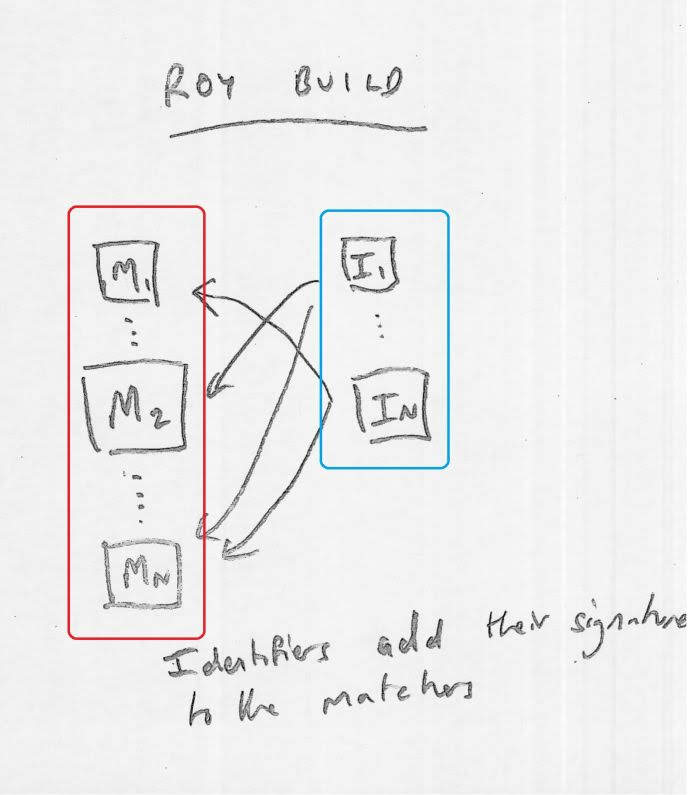 ROY BUILD
M1
I1
M2
IN
MN
Identifiers add their signature
to the matchers